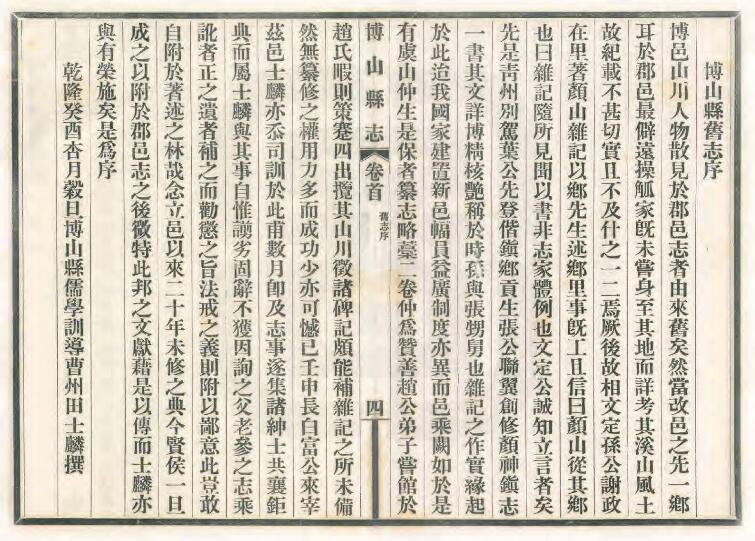 博山縣舊志序
博邑山川人物散見於郡邑志者由來舊矣然當改邑之先一鄉
耳於郡邑最僻遠操觚家旣未嘗身至其地而詳考其溪山風土
故紀載不甚切實且不及什之一二焉厥後故相文定孫公謝政
在里著顏山雜記以鄉先生述鄉里事旣工且信曰顏山從其鄉
也曰雜記隨所見聞以書非志家體例也文定公誠知立言者矣
先是靑州別駕葉公先登偕鎭鄉貢生張公聯翼創修顏神鎭志
一書其文詳博精核艷稱於時孫與張甥舅也雜記之作實緣起
於此迨我國家建置新邑幅員益廣制度亦異而邑乘闕如於是
有虞山仲生是保者纂志略藁二卷仲爲贊善趙公弟子嘗館於
博山縣志
卷首
舊志序
四
趙氏暇則策蹇四出攬其山川徵諸碑記頗能補雜記之所未備
然無纂修之權用力多而成功少亦可憾已壬申長白富公來宰
茲邑士麟亦忝司訓於此甫數月卽及志事遂集諸紳士共襄鉅
典而屬士麟與其事自惟譾劣固辭不獲因詢之父老參之志乘
訛者正之遺者補之而勸懲之旨法戒之義則附以鄙意此豈敢
自附於著述之林哉念立邑以來二十年未修之典今賢侯一旦
成之以附於郡邑志之後徵特此邦之文獻藉是以傳而士麟亦
與有榮施矣是爲序
乾隆癸酉杏月穀旦博山縣儒學訓導曹州田士麟撰